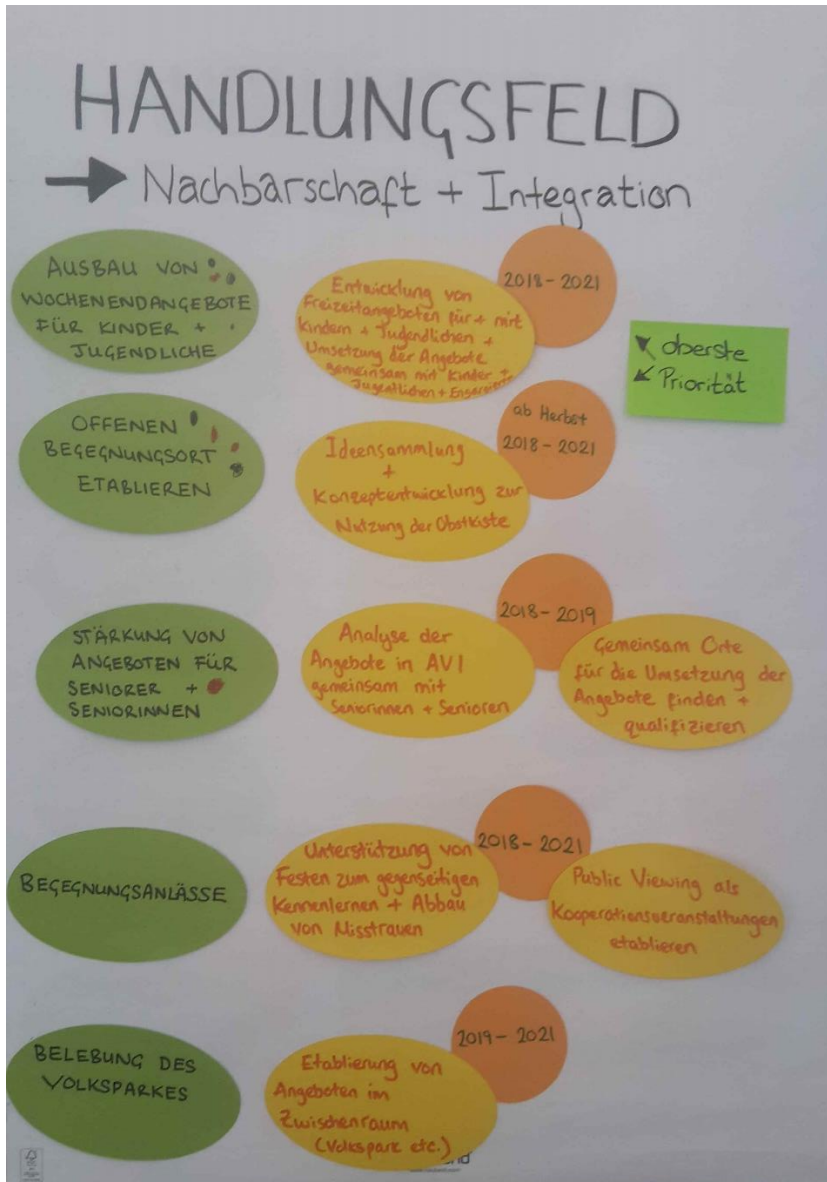 HANDLUNGSFELD
→ Nachbarschaft + Integration
AUSBAU VON
WOCHENENDANGEBOTE
FÜR KINDER +
JUGENDLICHE
Entwicklung von
Freizeitangeboten für + mit
Kindern + Jugendlichen +
Umsetzung der Angebote
gemeinsam mit Kinder +
Jugendlichen +
2018 - 2021
oberste
Priorität
OFFENEN
BEGEGNUNGSORT
ETABLIEREN
Ideensammlung
+
Konzeptentwicklung zur
Nutzung der Obstkiste
ab Herbst
2018 - 2021
STÄRKUNG VON
ANGEBOTEN FÜR
SENIORER +
SENIORINNEN
Analyse der
Angebote in AVI
gemeinsam mit
Seniorinnen + Senioren
2018 - 2019
Gemeinsam Orte
für die Umsetzung der
Angebote finden +
qualifizieren
BEGEGNUNGSANLÄSSE
Unterstützung von
Festen zum gegenseitigen
Kennenlernen + Abbau
von Misstrauen
2018 - 2021
Public Viewing als
Kooperationsveranstaltungen
etablieren
BELEBUNG DES
VOLKSPARKES
Etablierung von
Angeboten im
Zwischenraum
(Volkspark etc.)
2019 - 2021